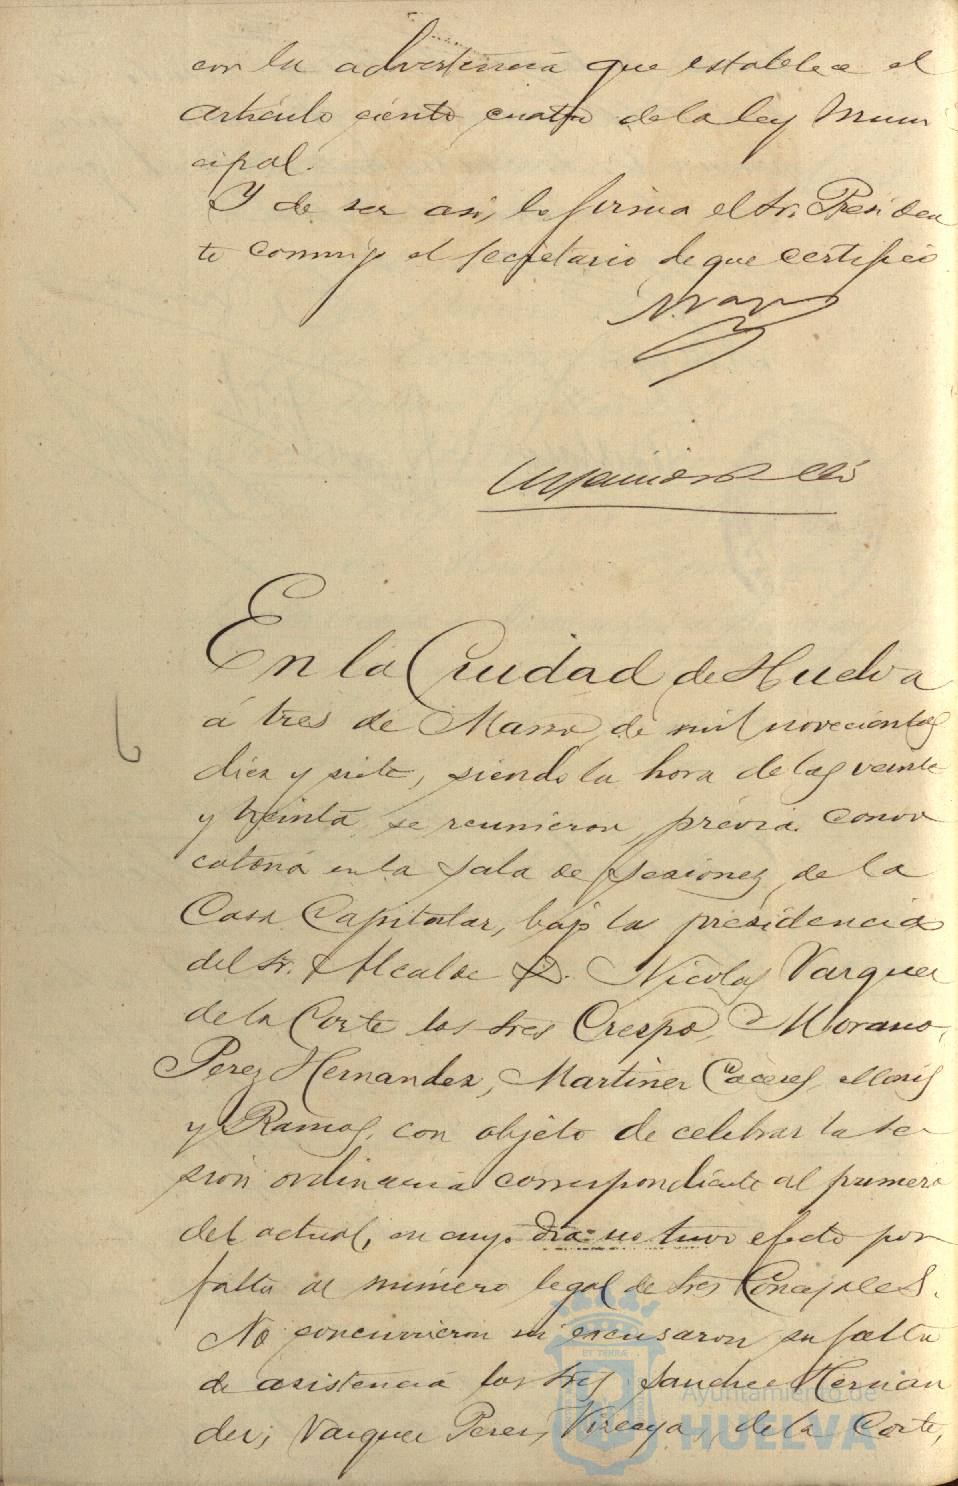 con la advertencia que establece el
artículo ciento cuatro de la ley Muni
cipal.
Y de ser asi, lo firma el Sr. Presiden
te conmigo el Secretario de que certifico
En la Ciudad de Huelva
á tres de Marzo de mil novecientos
diez y siete, siendo la hora de las veinte
y treinta se reunieron, prévia convo
catoria en la Sala de Sesiones de la
Casa Capitular, bajo la presidencia
del Sr. Alcalde D. Nicolas Vazquez
de la Corte los Sres Crespo, Morano,
Perez Hernandez, Martinez Caceres,
y Ramos, con objeto de celebrar la se
sion ordinaria correspondiente al primero
del actual, en cuyo dia no tuvo efecto por
falta de número legal de Sres Concejales.
No concurrieron ni excusaron su falta
de asistencia los Sres Sanchez Hernan
dez, Vazquez Perez, Vizcaya, de la Corte,
ET TERRÆ
Ayuntamiento de
HUELVA